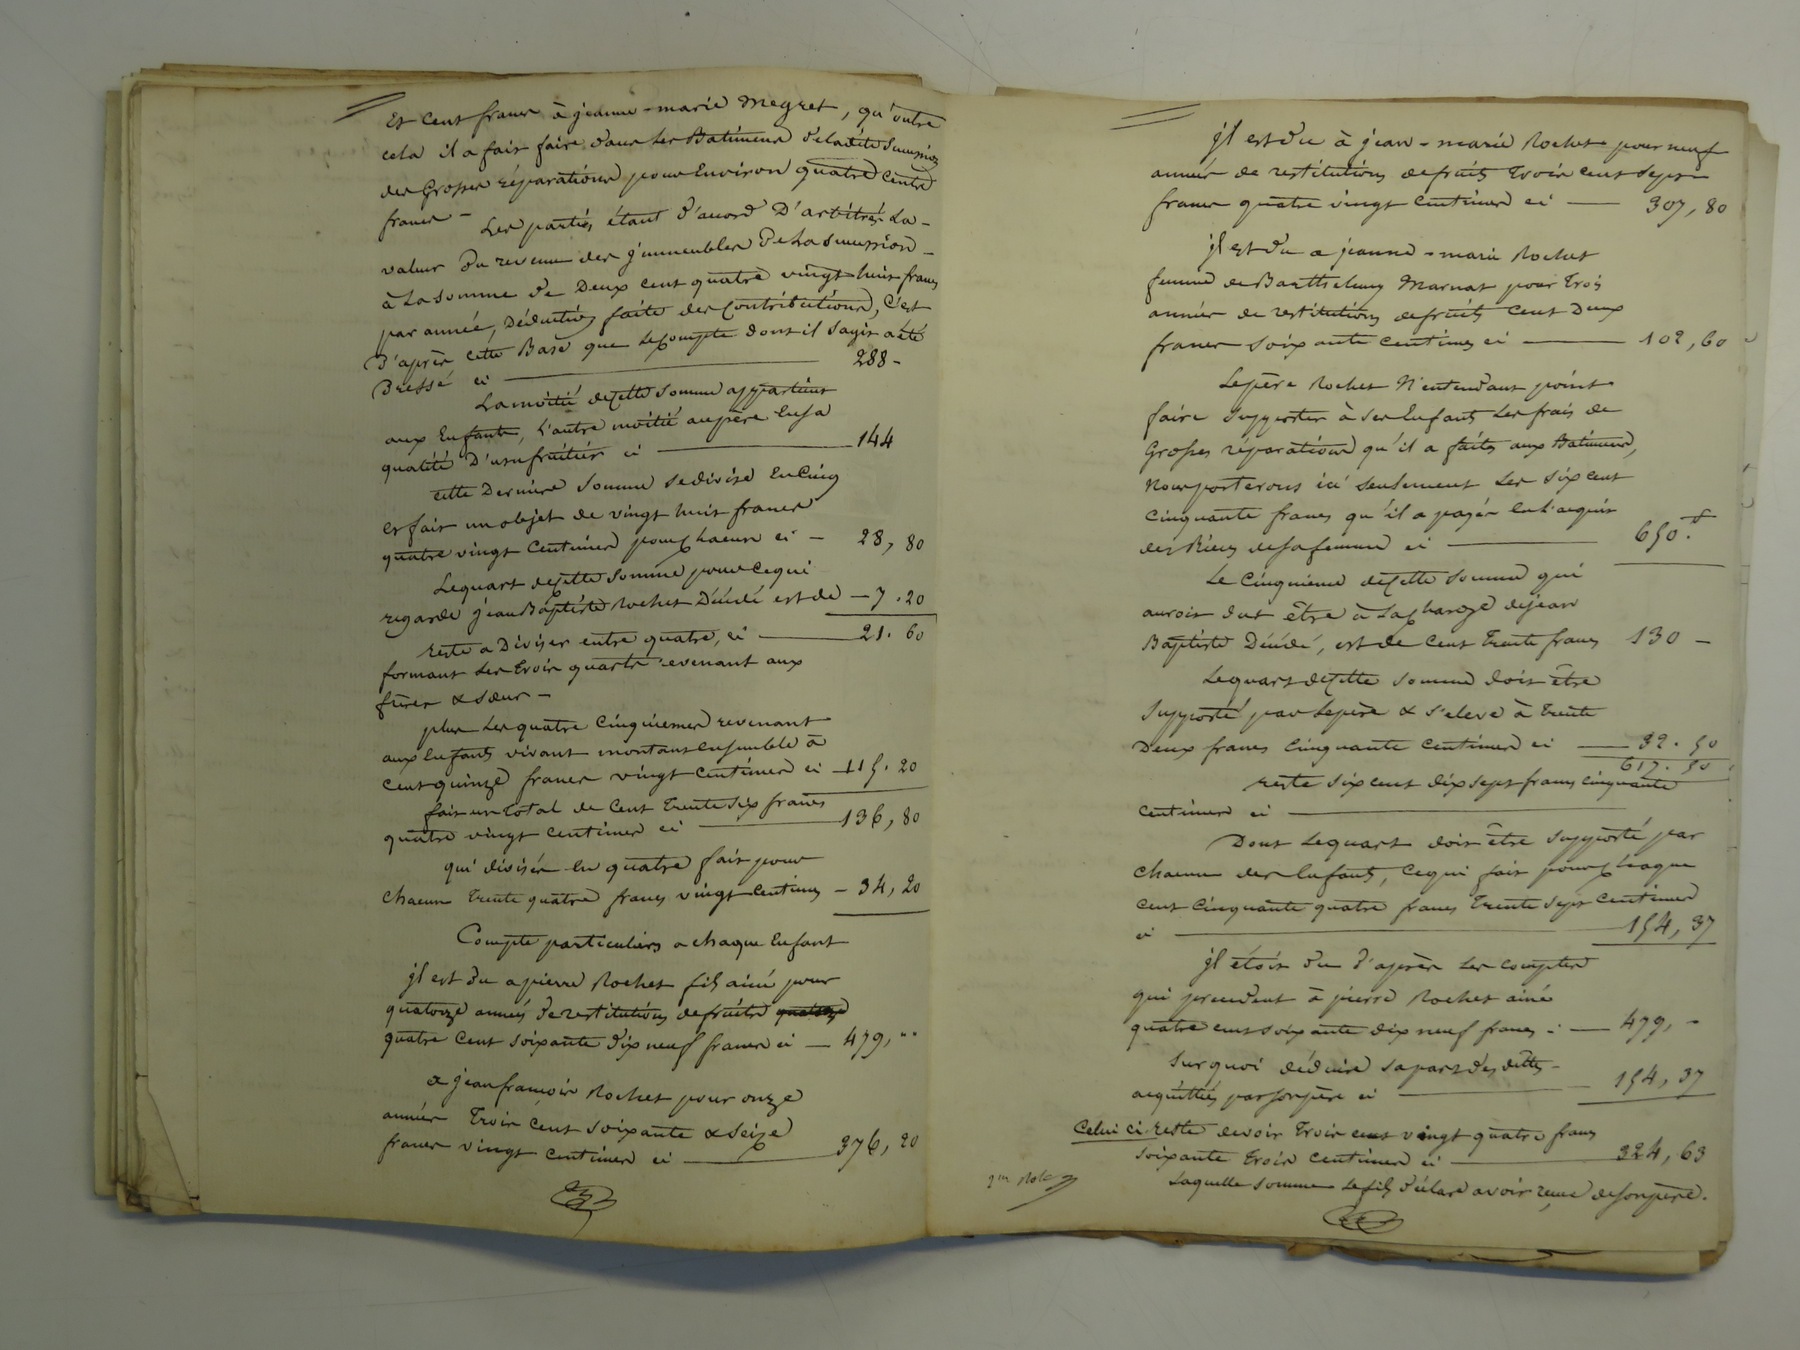 Et cent francs à jeanne-marie Megret, qu'outre
cela il a fait faire dans les Batimens de ladite Succession
des Grosses réparations pour Environ quatre Cents
francs -
Les parties étant d'accord D'arbitrer La -
valeur du revenu des jmmeubles De La Succession -
à La Somme de Deux cent quatre vingt huit francs
par année, Déduction faite des Contributions, C'est
D'après cette Base que Le Compte dont il S'agit a été
Dressé ci 288 -
La moitié de Cette Somme appartient
aux Enfants, L'autre moitié au père En Sa
qualité D'usufruitier ci 144
Cette Dernière Somme se divise En Cinq
et fait un objet de vingt huit francs
quatre vingt Centimes pour Chacun ci - 28, 80
Le quart de Cette Somme pour Ce qui
regarde jean Baptiste Rochet Décédé est de - 7. 20
reste a Diviser entre quatre, ci 21. 60
formant Les trois quarts revenant aux
frères & sœur -
plus Les quatre Cinquiemes revenant
aux Enfants vivant montant Ensemble à
Cent quinze francs vingt Centimes ci 115. 20
fait un Total de Cent Trente Six francs
quatre vingt Centimes ci 136, 80
qui divisés en quatre fait pour
Chacun Trente quatre francs vingt Centimes - 34, 20
Compte particuliers a chaque Enfant
jl est du a pierre Rochet fils ainé pour
quatorze années De restitutions de fruits quatorze
quatre Cent Soixante Dix neuf francs ci - 479, ""
a jean françois Rochet pour onze
années Trois Cent Soixante & Seize
francs vingt Centimes ci 376, 20
jl est du à jean-marie Rochet pour neuf
années de restitutions de fruits Trois Cent Sept
francs quatre vingt Centimes ci 307, 80
jl est du a jeanne-marie Rochet
femme de Barthelemy Marnat pour Trois
années de restitutions de fruits Cent Deux
francs Soixante Centimes ci 102, 60
Le père Rochet N'entendant point
faire Supporter à Ses Enfants Les frais de
Grosses réparations qu'il a faites aux Batimens,
Nous porterons ici Seulement Les Six Cent
Cinquante francs qu'il a payés En L'acquit
des Biens de Sa femme ci 650. f
Le Cinquieme de Cette Somme qui
auroit dut être à La Charge de jean
Baptiste Décédé, est de Cent Trente francs 130 -
Le quart de Cette Somme doit être
Supporté par Le père & S'eleve à Trente
Deux francs Cinquante Centimes ci 32. 50
617. 50
reste Six Cent dix Sept francs Cinquante
Centimes ci
Dont Le quart doit être Supporté par
Chacun des Enfants, Ce qui fait pour Chaque
Cent Cinquante quatre francs Trente Sept Centimes
ci 154, 37
jl étoit du d'après Les Comptes
qui precedent à pierre Rochet ainé
quatre cent Soixante dix neuf francs - 479, -
Sur quoi déduire Sa part des dettes -
acquittées par Son père ci 154, 37
Celui ci reste devoir Trois cent vingt quatre francs
Soixante Trois Centimes ci 324, 63
Laquelle Somme Le fils déclare avoir reçue de Son père.